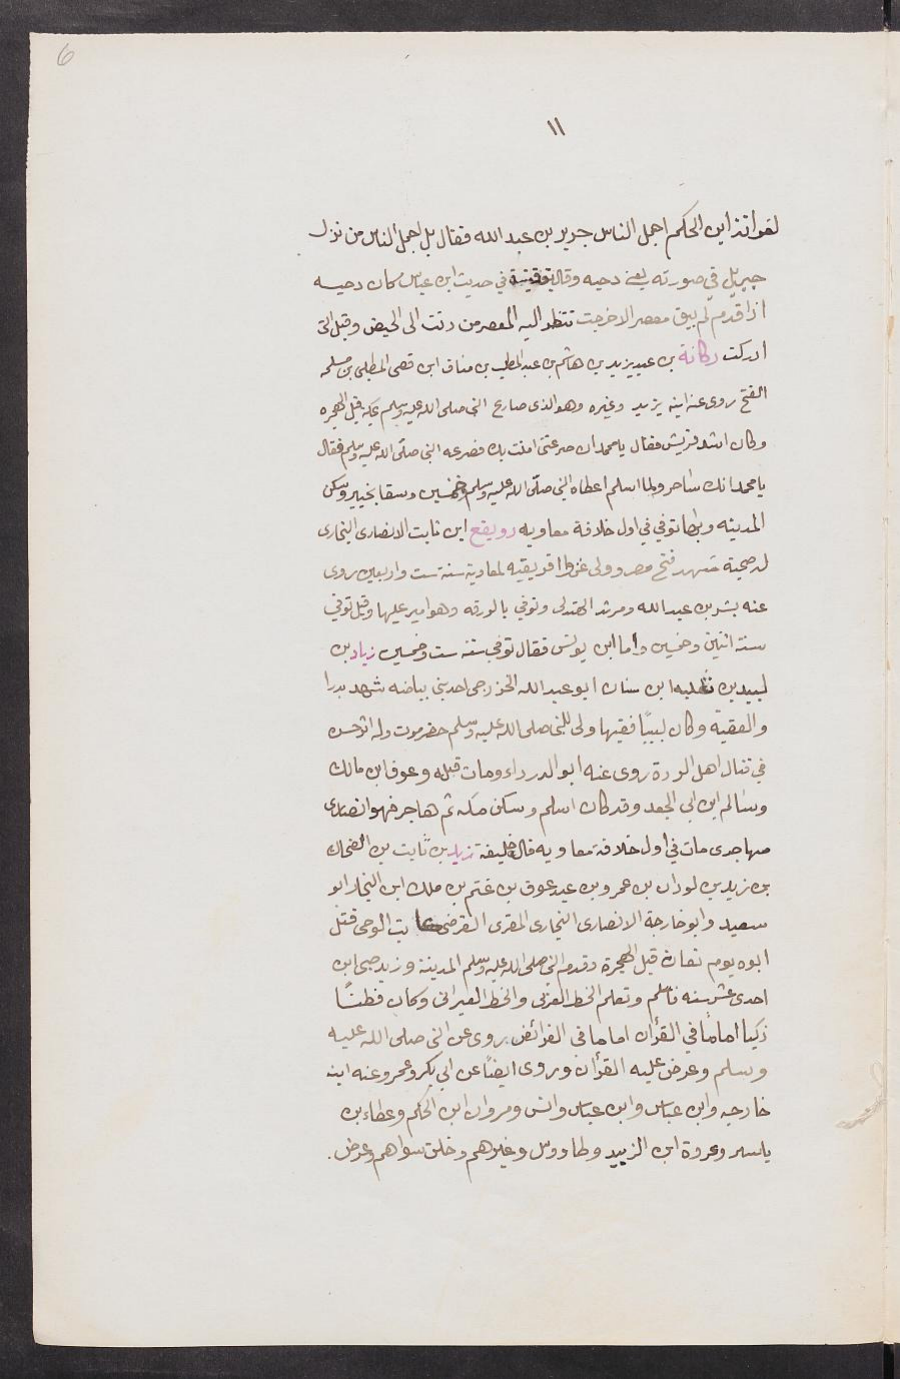 6
١١
لعوانة ابن الحكم اجمل الناس جرير بن عبد الله فقال بل اجمل الناس من نزل
جبريل في صورته يعني دحيه وقال بن قتيبة في حديث ابن عباس كان دحيه
اذا قدم لم يبق معصر الا خرجت تنظر اليه المعصر من دنت الى الحيض وقيل التى
ادركت ركانة بن عبد يزيد بن هاشم بن عبد المطلب بن مناف ابن قصى المطلبى من مسلمه
الفتح روى عنه ابنه يزيد وغيره وهو الذى صارع النبى صلى الله عليه وسلم بمكه قبل الهجره
وكان اشد قريش فقال يا محمد ان صرعتنى امنت بك فصرعه النبي صلى الله عليه وسلم فقال
يا محمد انك ساحر ولما اسلم اعطاه النبي صلى الله عليه وسلم خمسين وسقا بخيبر وسكن
المدينه وبها توفي في اول خلافة معاويه رويفع ابن ثابت الانصارى النجارى
له صحبة شهد فتح مصر وولى غزوا افريقيه لمعاوية سنة ست واربعين روى
عنه بشر بن عبد الله ومرثد وتوفي بالورقه وهو امير عليها وقيل توفي
سنة اثنين وخمسين واما ابن يونس فقال توفى سنة ست وخمسين زياد بن
لبيد بن ثعلبه ابن سنان ابو عبد الله الخزرجى احد بني بياضه شهد بدرا
والعقبة وكان لبيبًا فقيها ولى للنبى صلى الله عليه وسلم حضرموت وله اثر حسن
في قتال اهل الردة روى عنه ابو الدرداء ومات قبله وعوف ابن مالك
وسالم ابن ابى الجعد وقد كان اسلم وسكن مكه ثم هاجر فهو انصارى
مهاجرى مات في اول خلافة معاويه قال خليفه زيد بن ثابت بن الضحاك
بن زيد بن لوذان بن عمرو بن عبد عوف بن غنم بن ملك ابن النجار ابو
سعيد وابو خارجة الانصارى النجارى المقرى الفرضى كاتب الوحى قتل
ابوه يوم بعاث قبل الهجرة وقدم النبى صلى الله عليه وسلم المدينة وزيد صبى ابن
احدى عشر سنه فاسلم وتعلم الخط العربى والخط العبرانى وكان فطنًا
ذكيا اماما في القرآن اماما في الفرائض روى عن النبى صلى الله عليه
وسلم وعرض عليه القرآن وروى ايضًا عن ابي بكر وعمر وعنه ابنه
خارجه وابن عباس وابن عباس وانس ومروان ابن الحكم وعطاء بن
يسار وعروة ابن الزبير وطاووس وغيرهم وخلق سواهم وعرض.